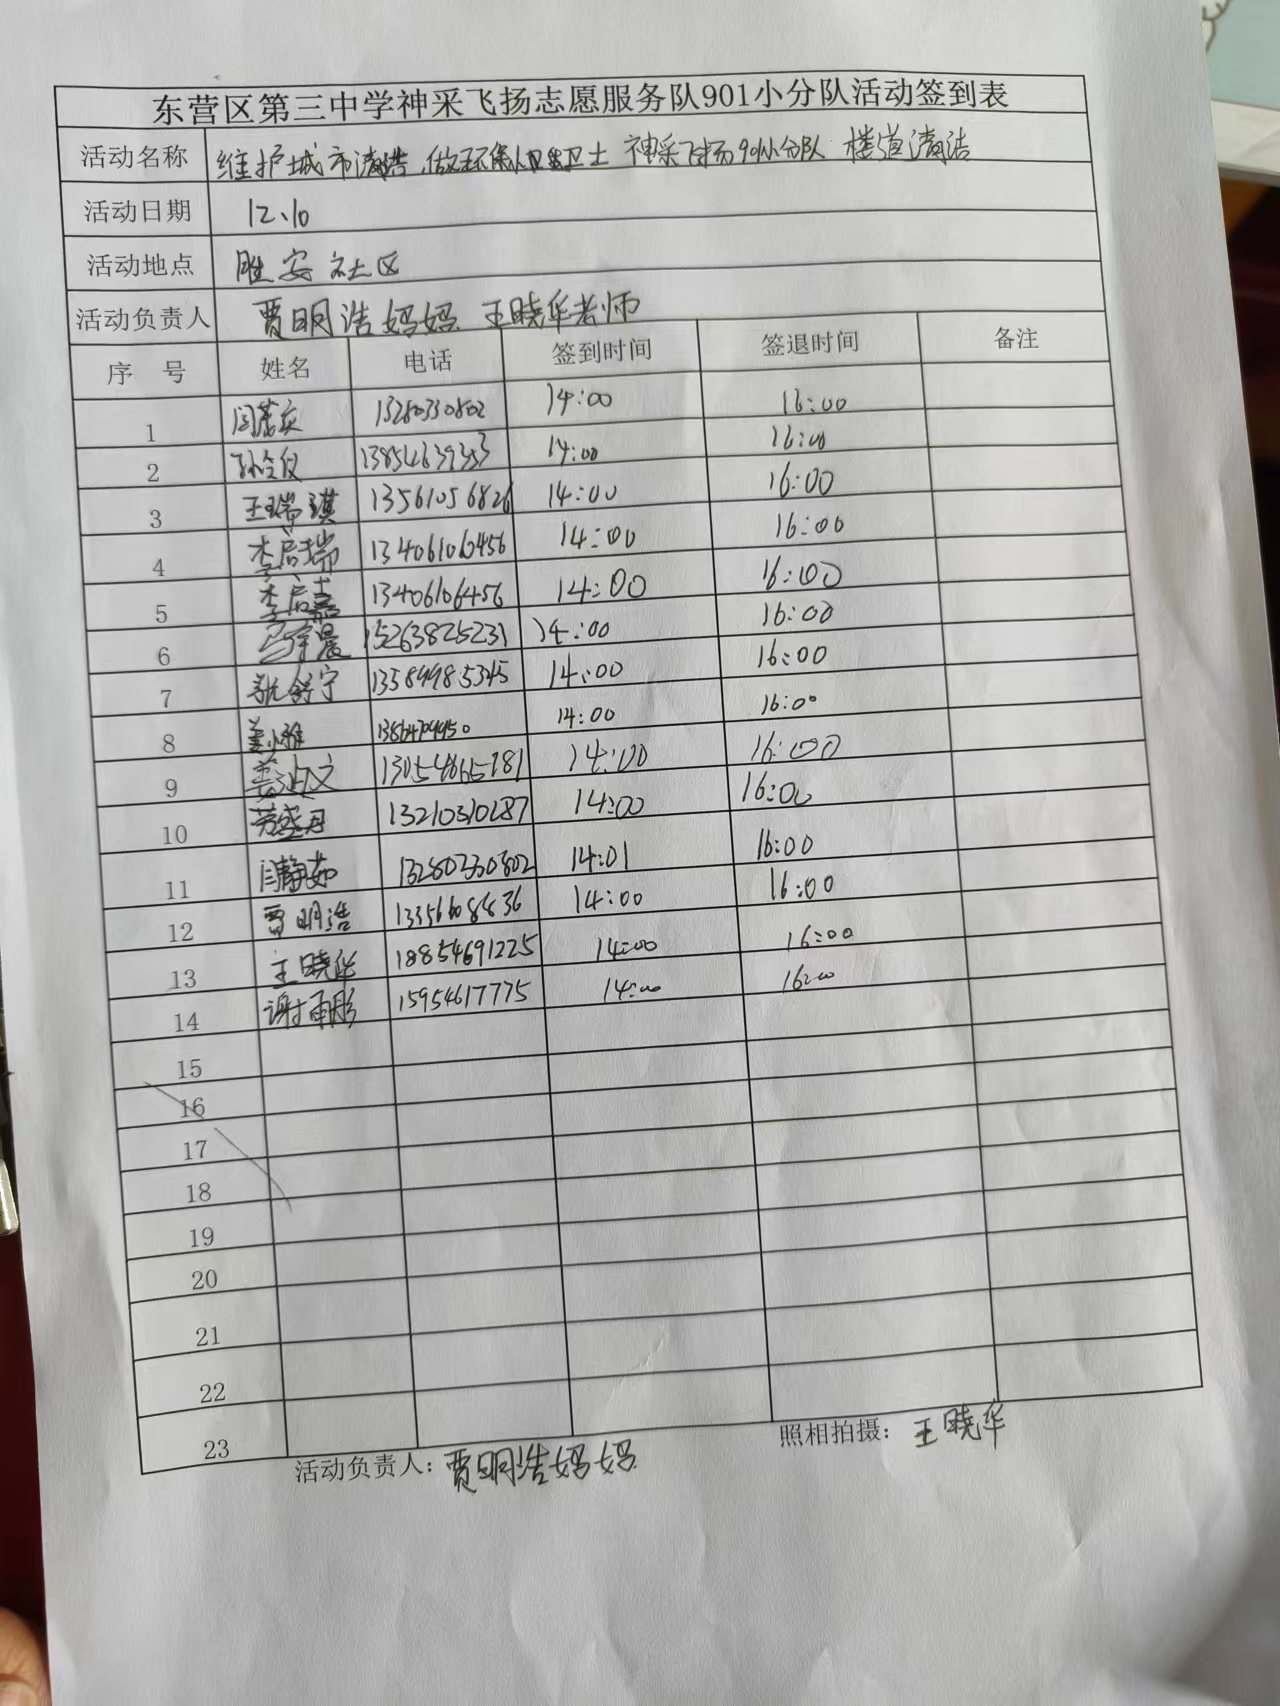 东营区第三中学神采飞扬志愿服务队901小分队活动签到表
活动名称 维护城市清洁,做环保小卫士 神采飞扬901小分队 楼道清洁
活动日期 12、10
活动地点 胜安社区
活动负责人 贾明浩妈妈 王晓华老师
序 号 姓名 电话 签到时间 签退时间 备注
1 14:00 16:00
2 孙令仪 13854639353 14:00 16:00
3 王瑞琪 13561056826 14:00 16:00
4 李启瑞 13406106456 14:00 16:00
5 李启嘉 13406106456 14:00 16:00
6 15263825231 14:00 16:00
7 13589985345 14:00 16:00
8 姜小雅 14:00 16:00
9 13054865781 14:00 16:00
10 13210310287 14:00 16:00
11 闫静茹 13280330802 14:01 16:00
12 贾明浩 14:00 16:00
13 王晓华 18854691225 14:00 16:00
14 谢雨彤 15954617775 14:00 16:00
15
16
17
18
19
20
21
22
23
活动负责人：贾明浩妈妈 照相拍摄：王晓华